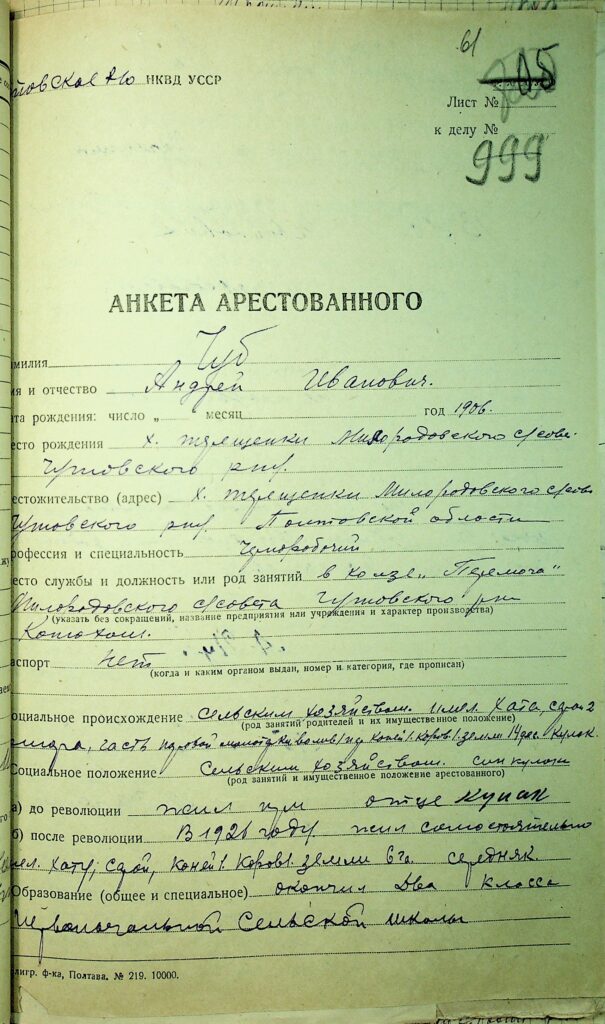 61
НКВД УССР
05
Лист №
к делу №
999
АНКЕТА АРЕСТОВАННОГО
милия Чуб
я и отчество Андрей Иванович.
та рождения: число „ месяц год 1906.
есто рождения х. Милорадовского с/сове
Чутовского
естожительство (адрес) х. Милорадовского с/сов
Чутовского Полтовской области
рофессия и специальность Чернорабочий
есто службы и должность или род занятий в колхозе „Перемога"
Милорадовского с/совета Чутовского р-н
(указать без сокращений, название предприятия или учреждения и характер производства)
Конюхом.
аспорт нет
(когда и каким органом выдан, номер и категория, где прописан)
оциальное происхождение Сельским хозяйством. имел. Хата, сарай 2
(род занятий родителей и их имущественное положение)
часть паровой молотилки коней 1 коров 1 земли 14 дес. Кулак.
Социальное положение Сельским хозяйством. сын кулака
(род занятий и имущественное положение арестованного)
а) до революции жил при отце кулак
б) после революции В 1926 году жил самостоятельно
мел. Хату, сарай, коней 1. Коров 1. земли 6 га. середняк.
Образование (общее и специальное) окончил два класса
Первоначальной Сельской школы
лигр. ф-ка, Полтава. № 219. 10000.